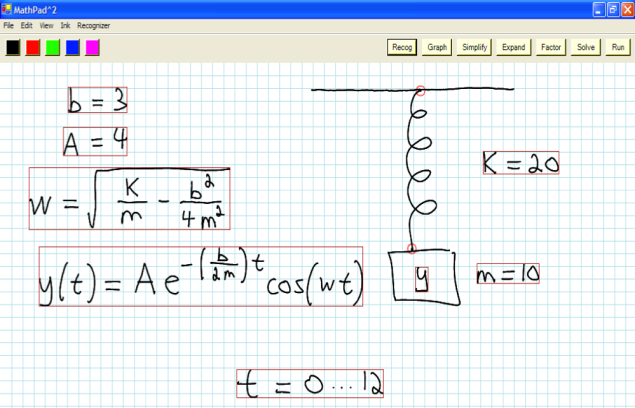 MathPad^2
File Edit View Ink Recognizer
Recog Graph Simplify Expand Factor Solve Run
b = 3
A = 4
K = 20
w = √(K/m - b²/4m²)
y(t) = A e^(-(b/2m)t) cos(wt)
y
m = 10
t = 0 ... 12